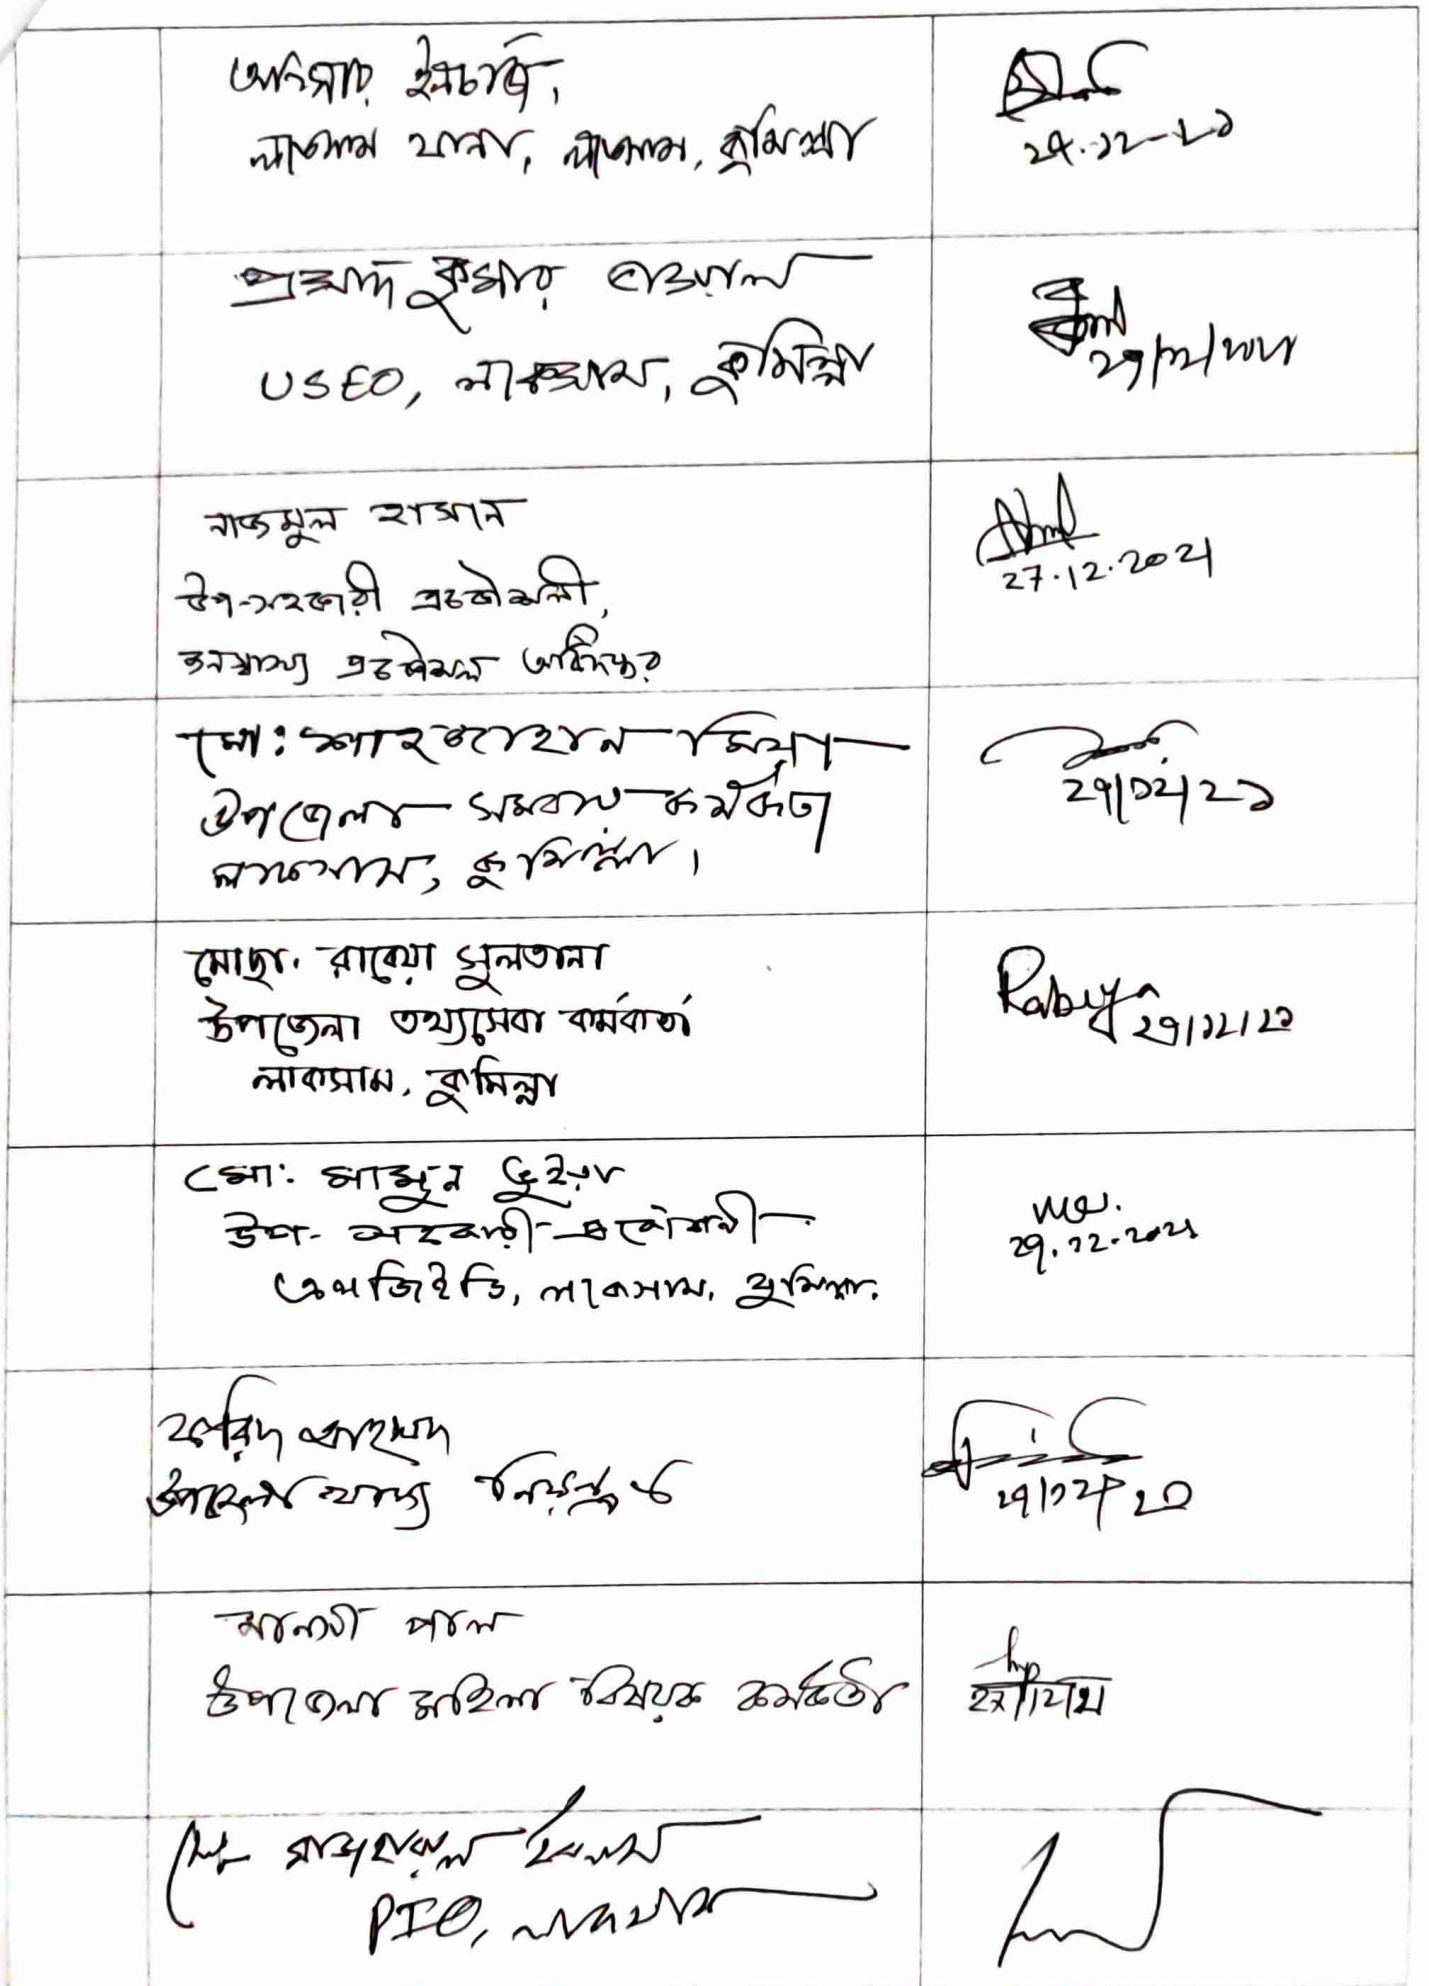 অফিসার ইনচার্জ,
লাকসাম থানা, লাকসাম, কুমিল্লা
২৭.১২-২১
কুমার
USEO, লাকসাম, কুমিল্লা
২৭/১২/২০২১
নাজমুল হাসান
উপ-সহকারী প্রকৌশলী,
জনস্বাস্থ্য প্রকৌশল অধিদপ্তর
27.12.2021
মো: শাহজাহান মিয়া
উপজেলা সমবায় কর্মকর্তা
লাকসাম, কুমিল্লা।
২৭/১২/২১
মোছা. রাবেয়া সুলতানা
উপজেলা তথ্যসেবা কর্মকর্তা
লাকসাম, কুমিল্লা
Rabeya
২৭/১২/২১
মো: মামুন ভুইয়া
উপ-সহকারী প্রকৌশলী
এলজিইডি, লাকসাম, কুমিল্লা.
২৭.১২.২০২১
ফরিদ আহমেদ
উপজেলা খাদ্য নিয়ন্ত্রক
২৭/১২/২১
পাল
উপজেলা মহিলা বিষয়ক কর্মকর্তা
২৭/১২/২১
ইসলাম
PIO, লাকসাম